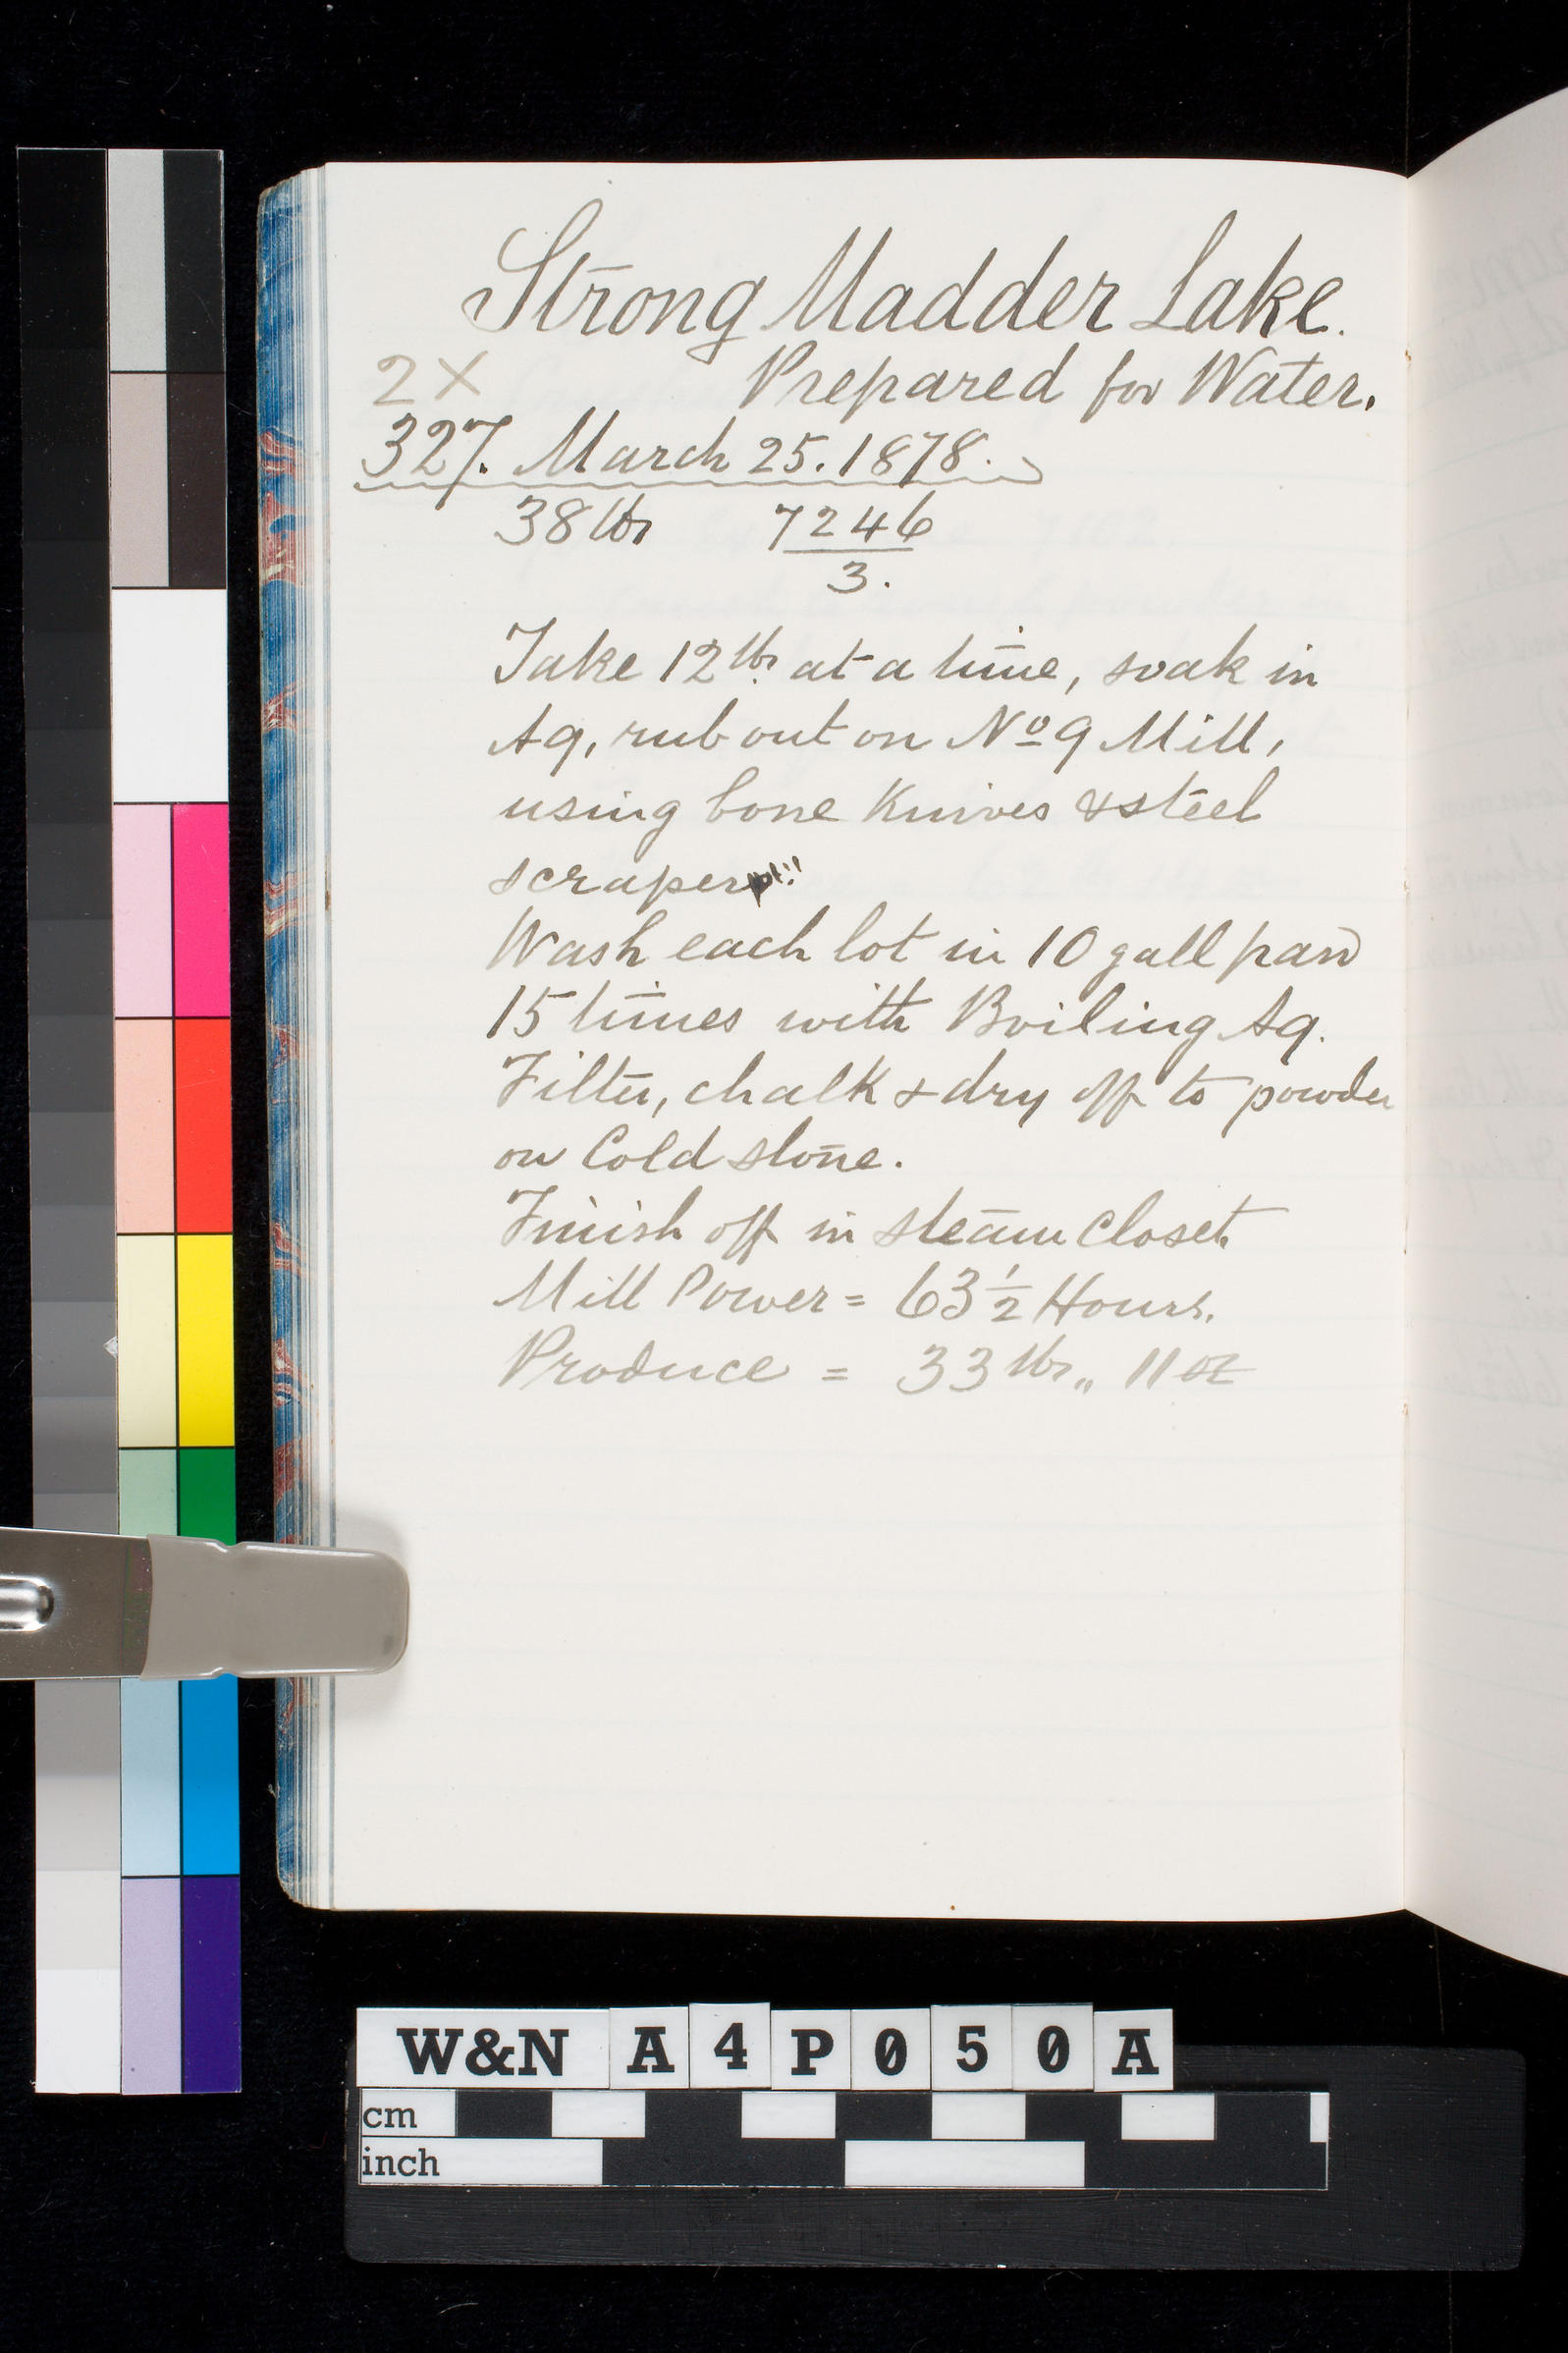 Strong Madder Lake.
2 X Prepared for Water.
327. March 25. 1878.
38 lbs 7246
3.
Take 12 lbs. at a time, soak in
Aq, rub out on No 9 Mill,
using bone Knives & steel
scraper !!!
Wash each lot in 10 gall pan
15 times with Boiling Aq.
Filter, chalk & dry off to powder
on Cold stone.
Finish off in steam closet.
Mill Power = 63 1/2 Hours.
Produce = 33 lbs,, 11 oz
W&N A4P050A
cm
inch